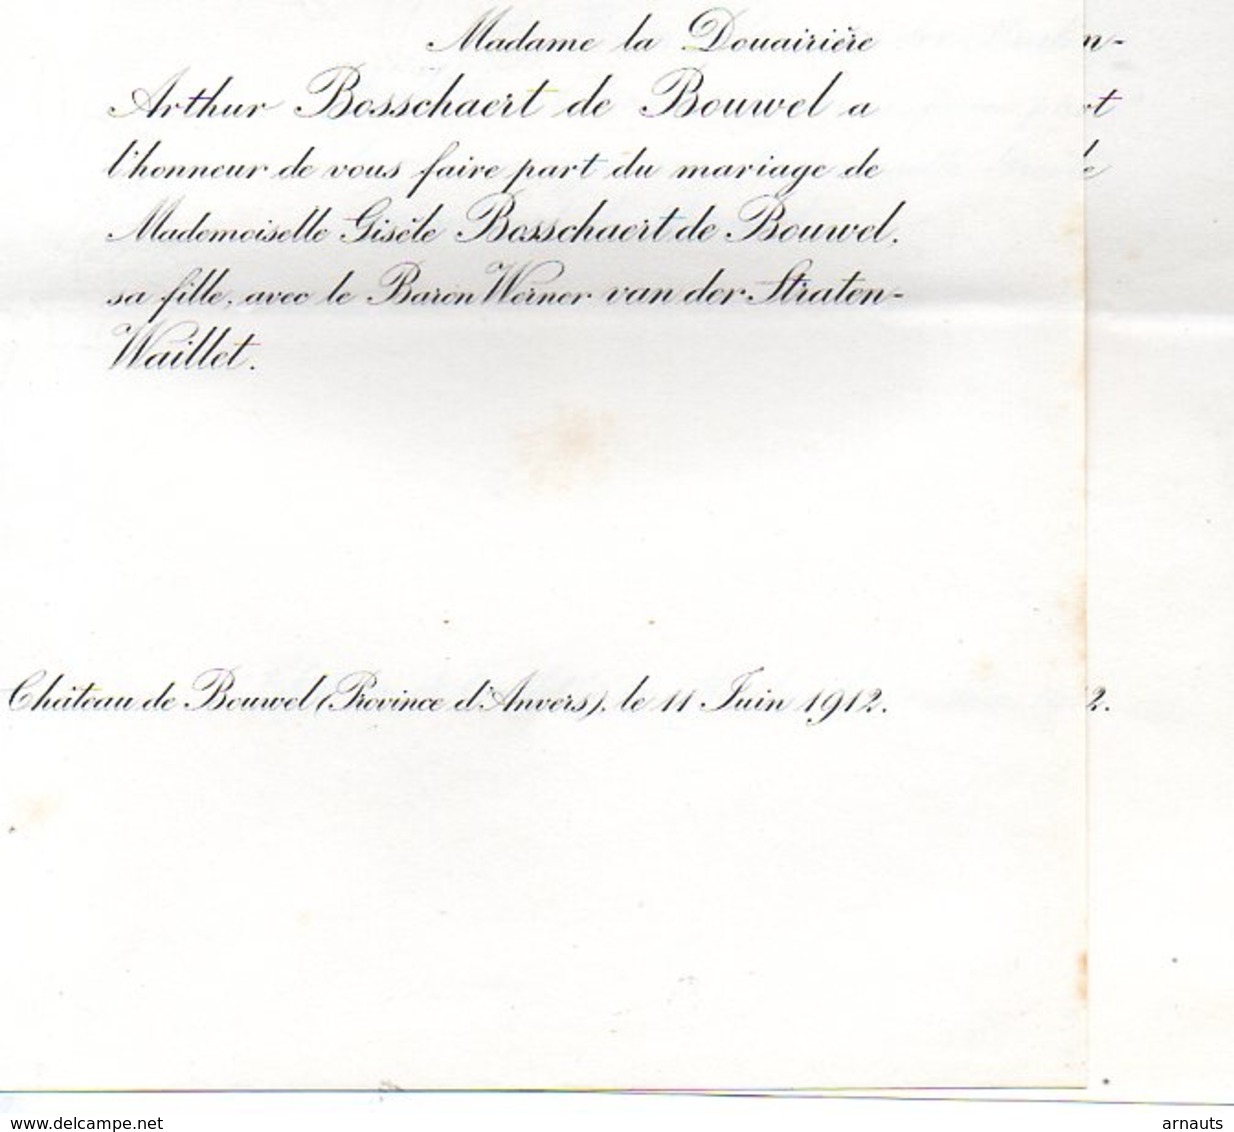 Madame la Douairière
Arthur Bosschaert de Bouwel a
l'honneur de vous faire part du mariage de
Mademoiselle Gisèle Bosschaert de Bouwel,
sa fille, avec le Baron Werner van der Straten-
Waillet.
Château de Bouwel (Province d'Anvers), le 11 Juin 1912.
n-
rt
le
2.
www.delcampe.net
arnauts